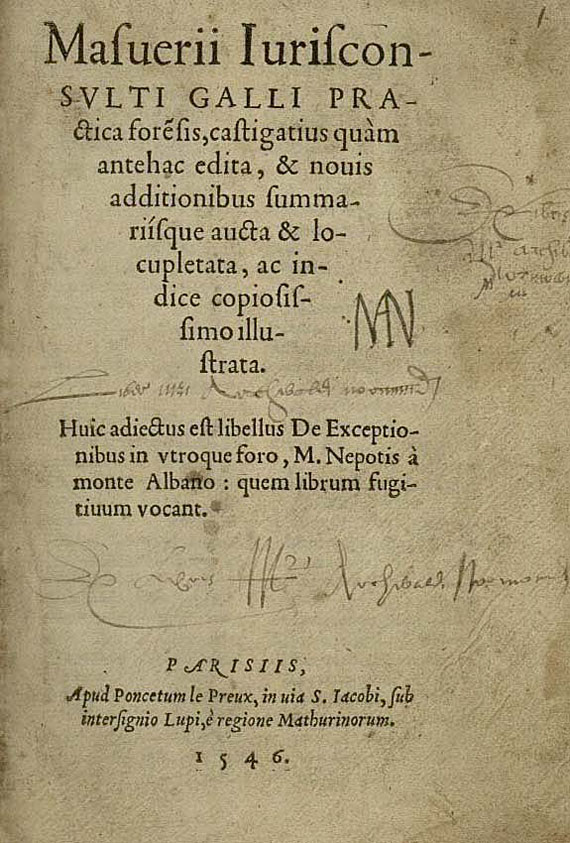 1
Maſuerii Iuriſcon-
SVLTI GALLI PRA-
ctica forẽſis, caſtigatius quàm
antehac edita, & nouis
additionibus ſumma-
riíſque aucta & lo-
cupletata, ac in-
dice copioſiſ-
ſimo illu-
ſtrata.
Liber Archibaldi
Huic adiectus eſt libellus De Exceptio-
nibus in vtroque foro, M. Nepotis à
monte Albano : quem librum fugi-
tiuum vocant.
Archibaldi
PARISIIS,
Apud Poncetum le Preux, in uia S. Iacobi, ſub
interſignio Lupi, è regione Mathurinorum.
1546.